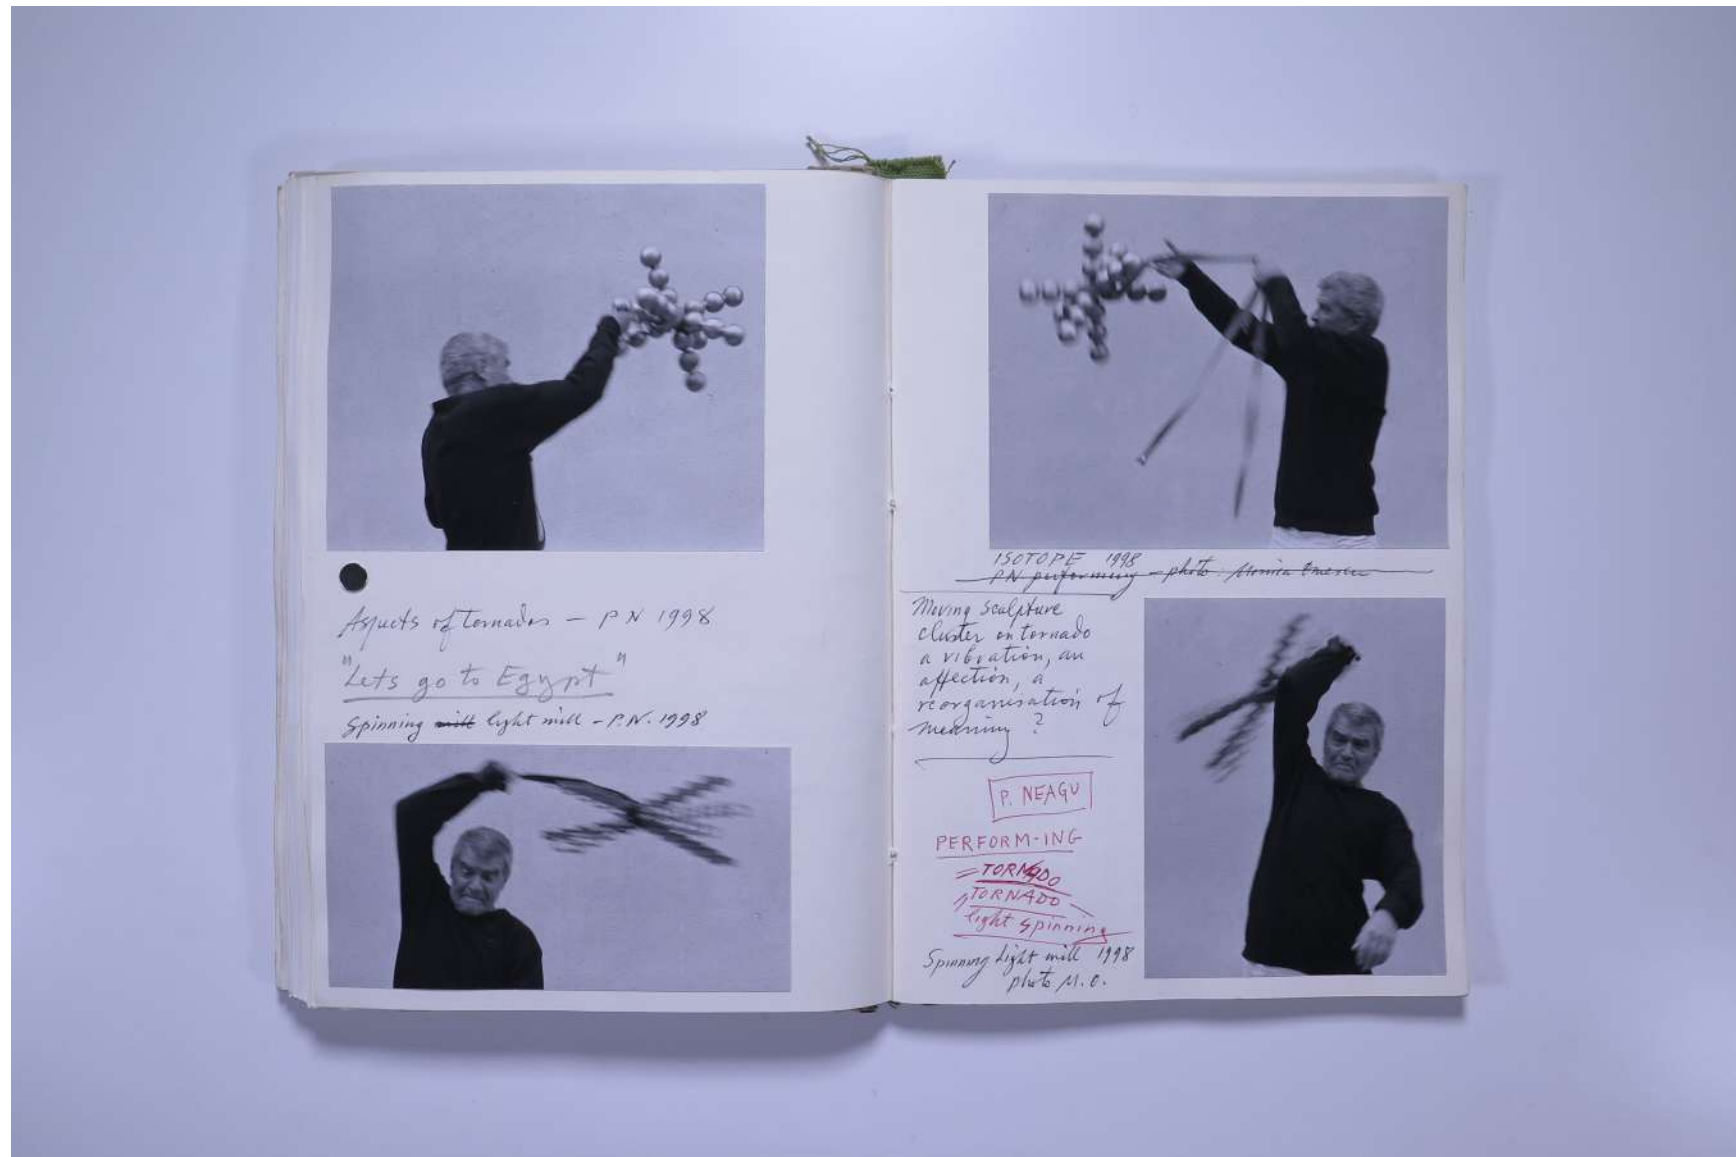 Aspects of tornados — P N 1998
"Lets go to Egypt"
Spinning mill light mill – P.N. 1998
ISOTOPE 1998
P.N. performing – photo: Monica Omescu
Moving sculpture
cluster on tornado
a vibration, an
affection, a
reorganisation of
meaning ?
P. NEAGU
PERFORM-ING
TORNADO
TORNADO
light spinning
Spinning light mill 1998
photo M.O.